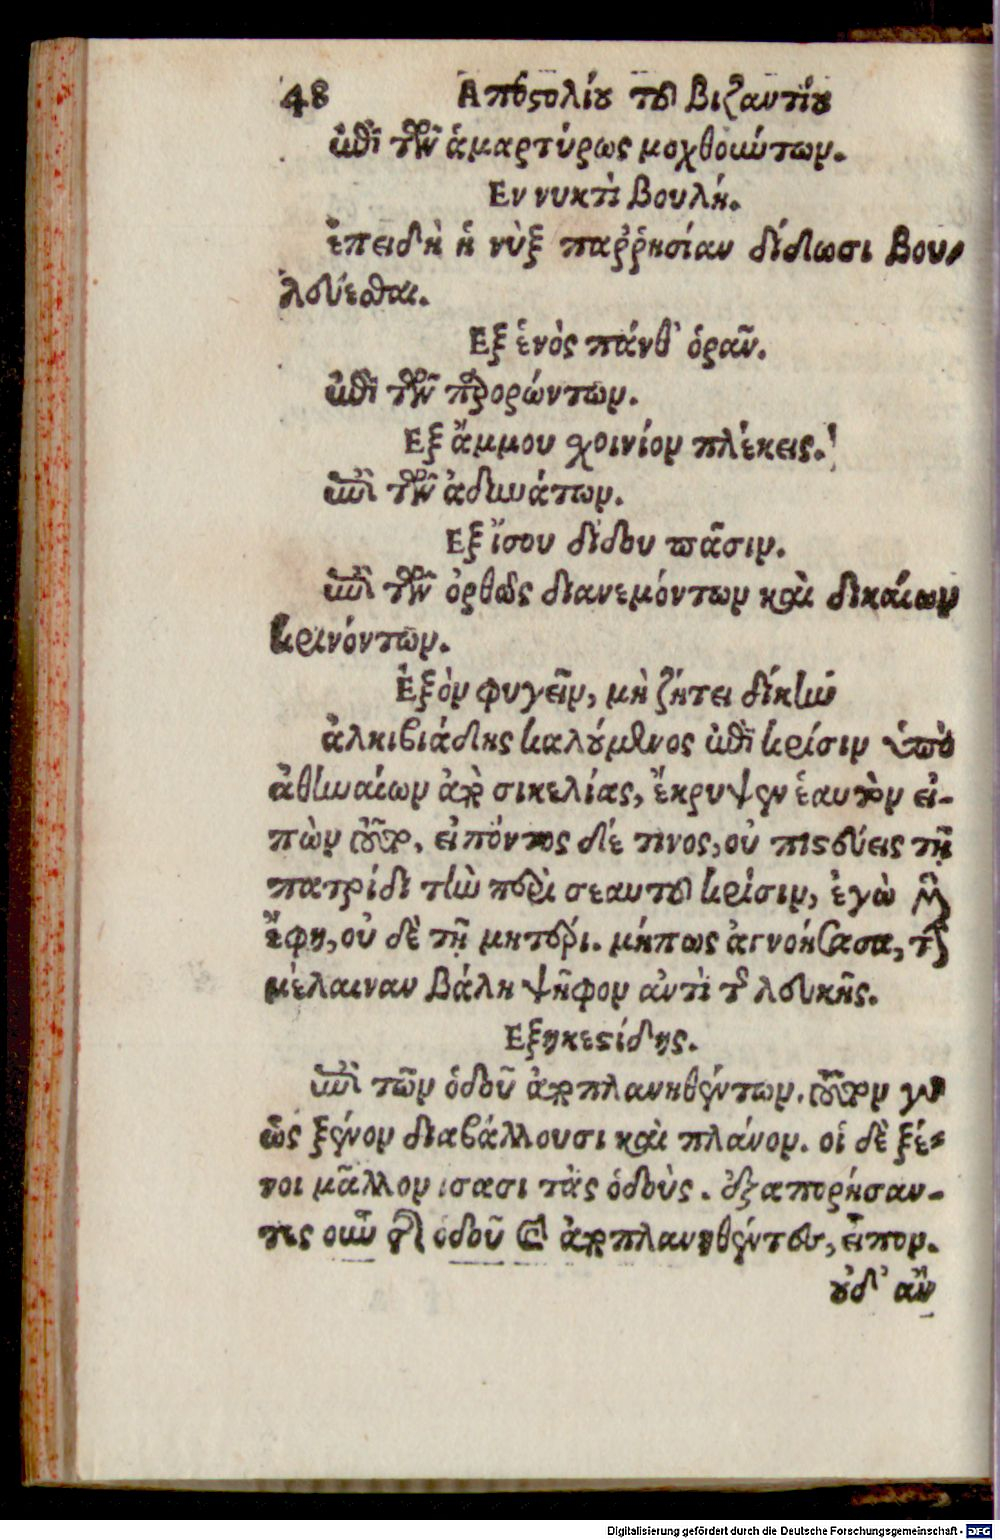 48 Αποστολίου τοῦ Βιζαντίου
ἐπὶ τῶν ἀμαρτύρως μοχθούντων.
Εν νυκτὶ βουλή.
ἐπειδὴ ἡ νὺξ παῤῥησίαν δίδωσι βου-
λεύεσθαι.
Εξ ἑνὸς πάνθ' ὁρᾶν.
ἐπὶ τῶν προορώντων.
Εξ ἄμμου σχοινίον πλέκεις.
ἐπὶ τῶν ἀδυνάτων.
Εξ ἴσου δίδου πᾶσιν.
ἐπὶ τῶν ὀρθῶς διανεμόντων καὶ δικαίων
κρινόντων.
Ἐξὸν φυγεῖν, μὴ ζήτει δίκην
ἀλκιβιάδης καλούμενος ἐπὶ κρίσιν ὑπὸ
ἀθηναίων ἀπὸ σικελίας, ἔκρυψεν ἑαυτὸν εἰ-
πὼν οὕτω. εἰπόντος δέ τινος, οὐ πιστεύεις τῇ
πατρίδι τὴν περὶ σεαυτοῦ κρίσιν, ἐγὼ μὲν
ἔφη, οὐ δὲ τῇ μητρί. μήπως ἀγνοήσασα, τὴν
μέλαιναν βάλη ψῆφον ἀντὶ τῆς λευκῆς.
Εξηκεστίδης.
ἐπὶ τῶν ὁδοῦ ἀποπλανηθέντων.
ὡς ξένον διαβάλλουσι καὶ πλάνον. οἱ δὲ ξέ-
νοι μᾶλλον ισασι τὰς ὁδοὺς. ἐξαπορήσαν-
τες οὖν τῆς ὁδοῦ καὶ ἀποπλανηθέντες, εἶπον.
οὐδ' ἂν
Digitalisierung gefördert durch die Deutsche Forschungsgemeinschaft - DFG